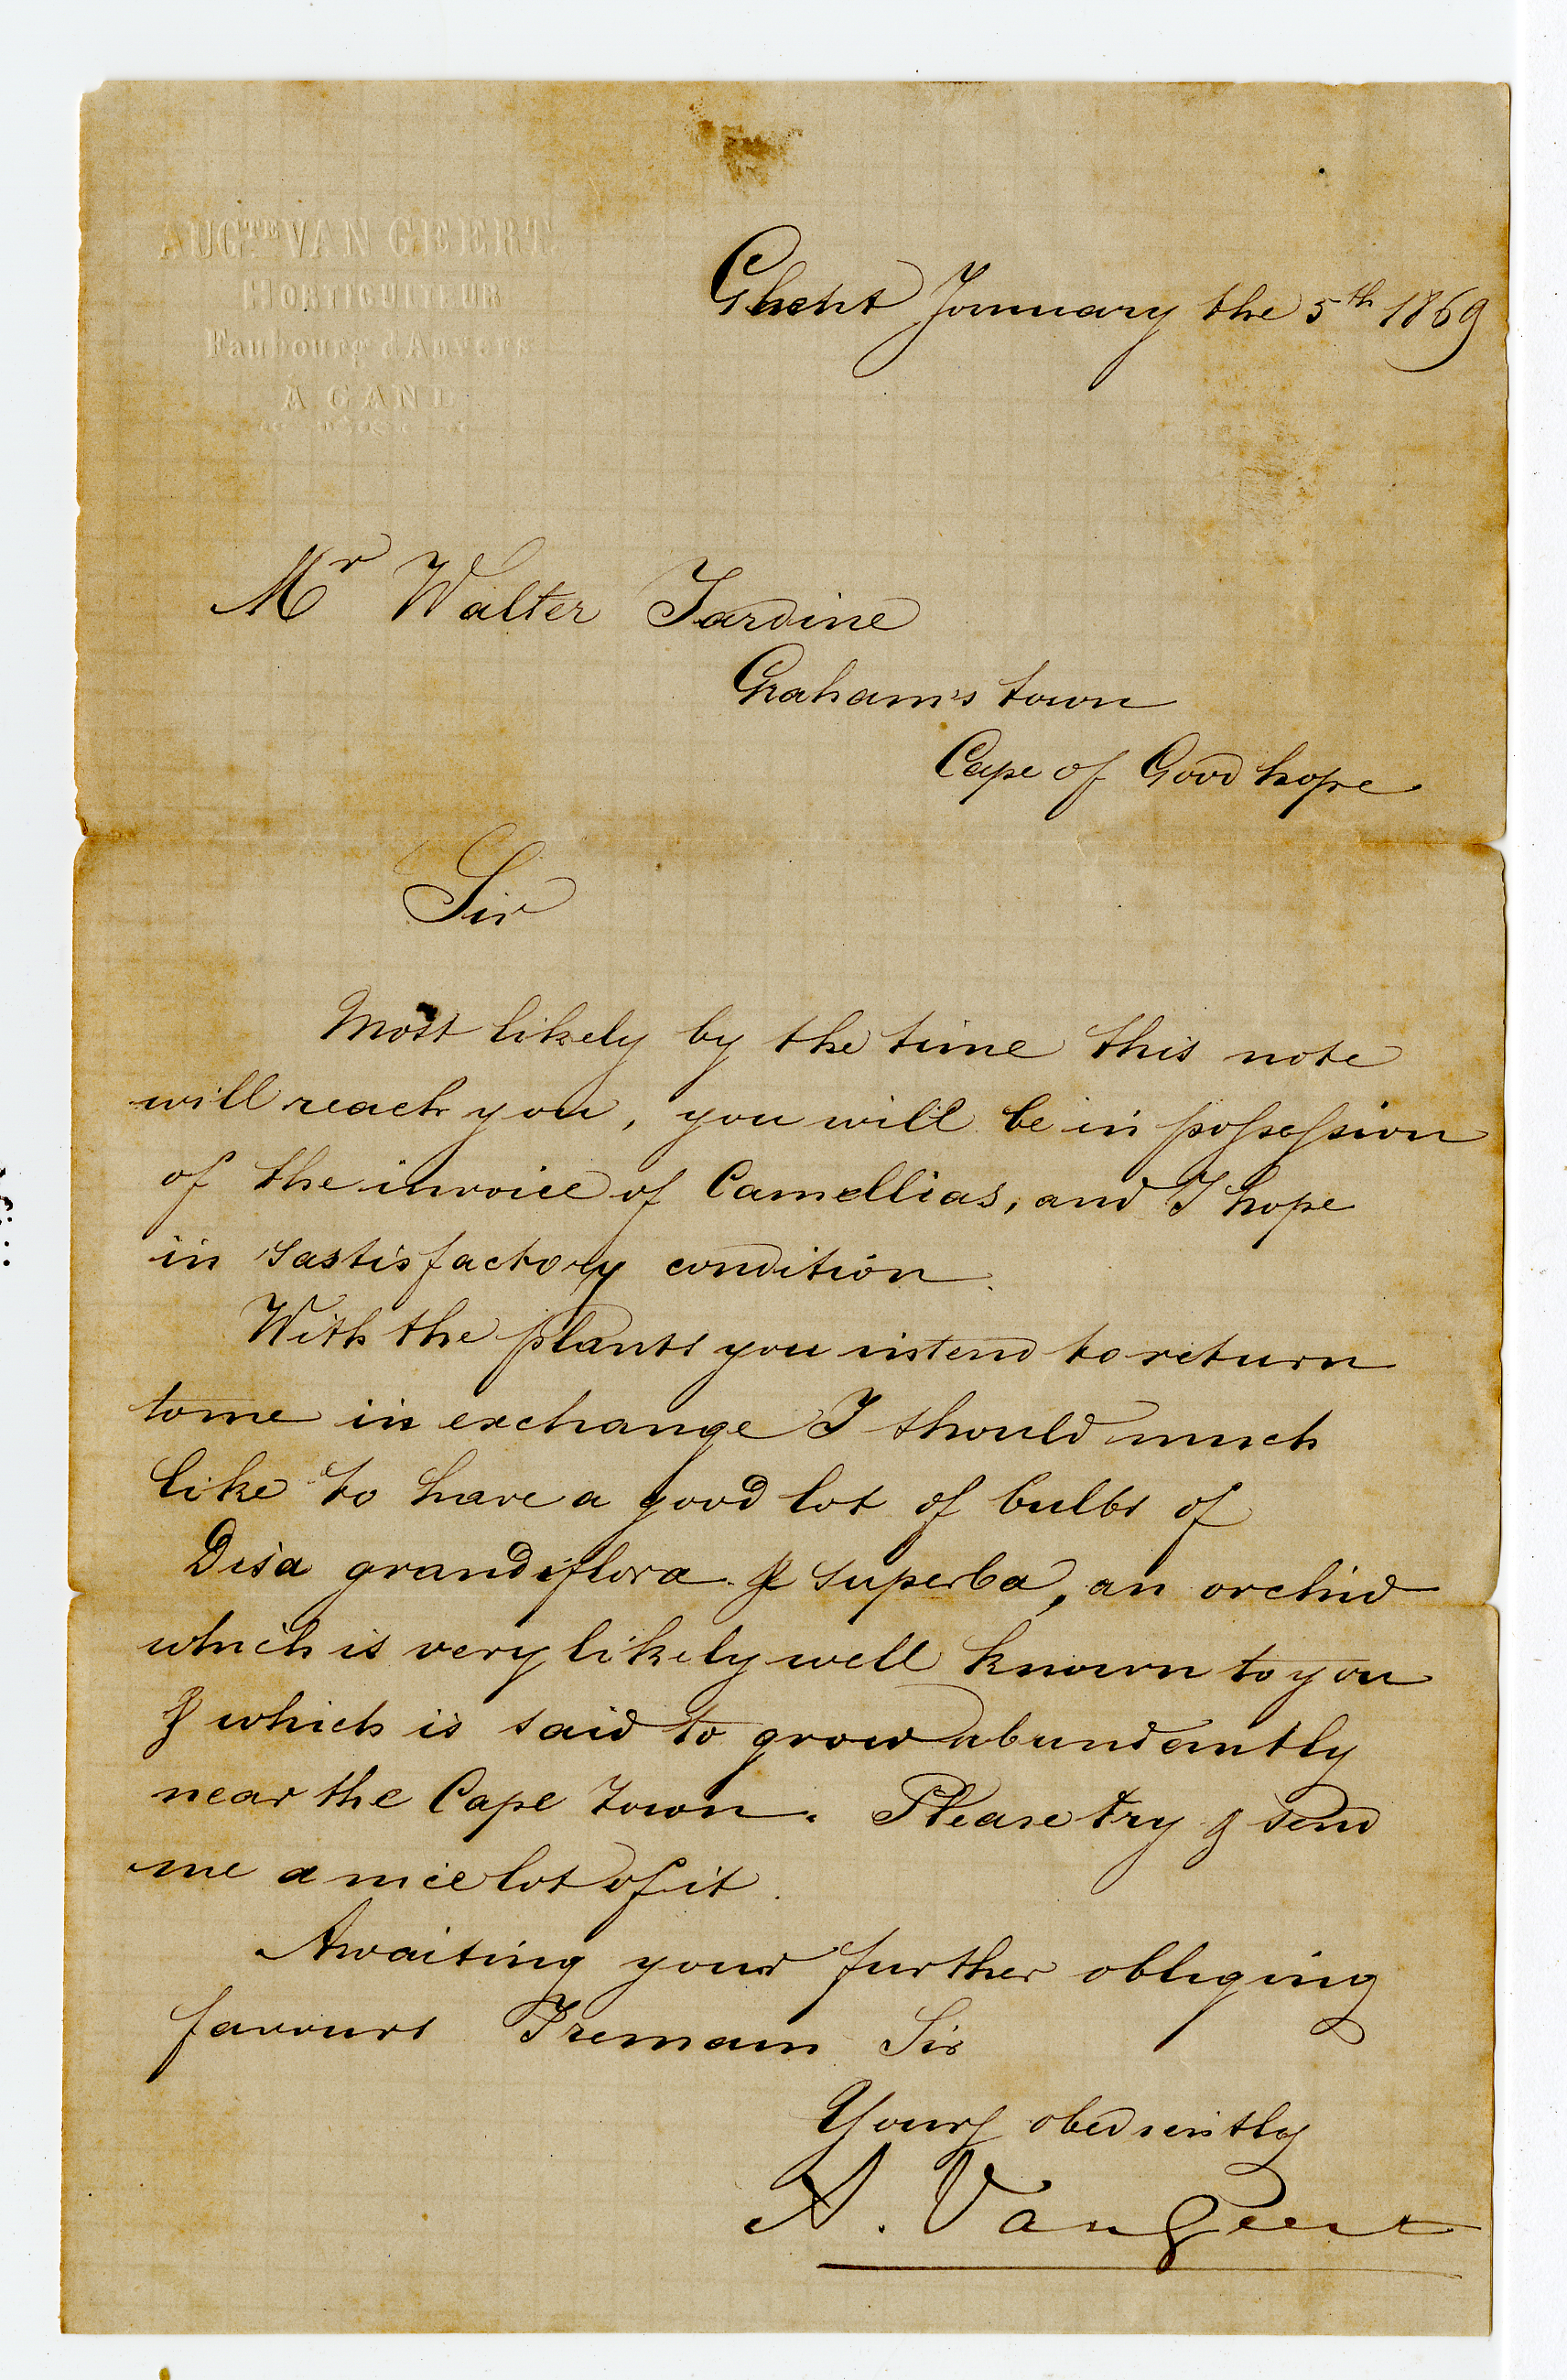 AUGTE VAN GEERT
HORTICULTEUR
Faubourg d'Anvers
A GAND
Ghent January the 5th 1869
Mr Walter Jardine
Graham's town
Cape of Good hope
Sir
Most likely by the time this note
will reach you, you will be in possession
of the invoice of Camellias, and I hope
in sastisfactory condition.
With the plants you intend to return
to me in exchange I should much
like to have a good lot of bulbs of
Disa grandiflora & superba, an orchid
which is very likely well known to you
& which is said to grow abundantly
near the Cape Town. Please try & send
me a nice lot of it.
Awaiting your further obliging
favours I remain Sir
Yours obediently
A. Van Geert